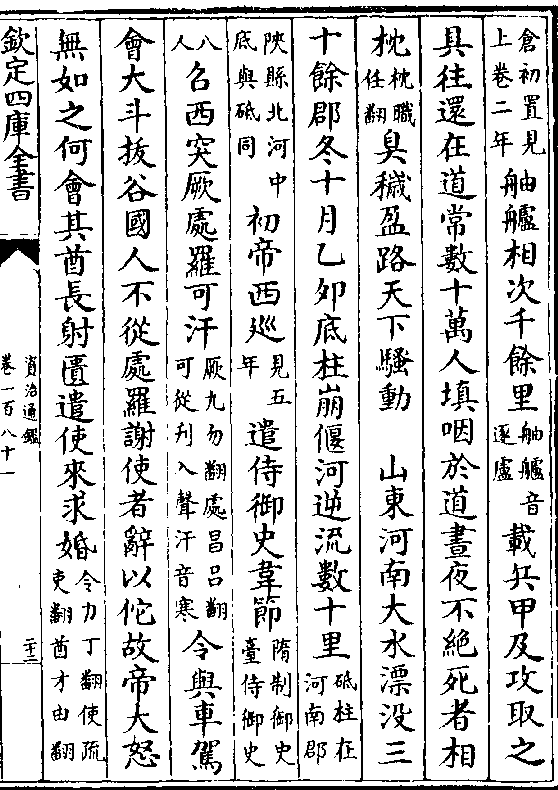 倉初置見上卷二年舳艫相次千餘里舳艫音逐盧載兵甲及攻取之
具往還在道常數十萬人填咽於道晝夜不絕死者相
枕枕職任翻臭穢盈路天下騷動　山東河南大水漂没三
十餘郡冬十月乙夘底柱崩偃河逆流數十里砥柱在河南郡
陜縣北河中底與砥同初帝西廵見五年遣侍御史韋節隋制御史臺侍御史
八人召西突厥處羅可汗厥九勿翻處昌吕翻可從刋入聲汗音寒令與車駕
會大斗拔谷國人不從處羅謝使者辭以佗故帝大怒
無如之何會其酋長射匱遣使來求婚令力丁翻使疏吏翻酋才由翻
欽定四庫全書
資治通鑑
卷一百八十一
二十三